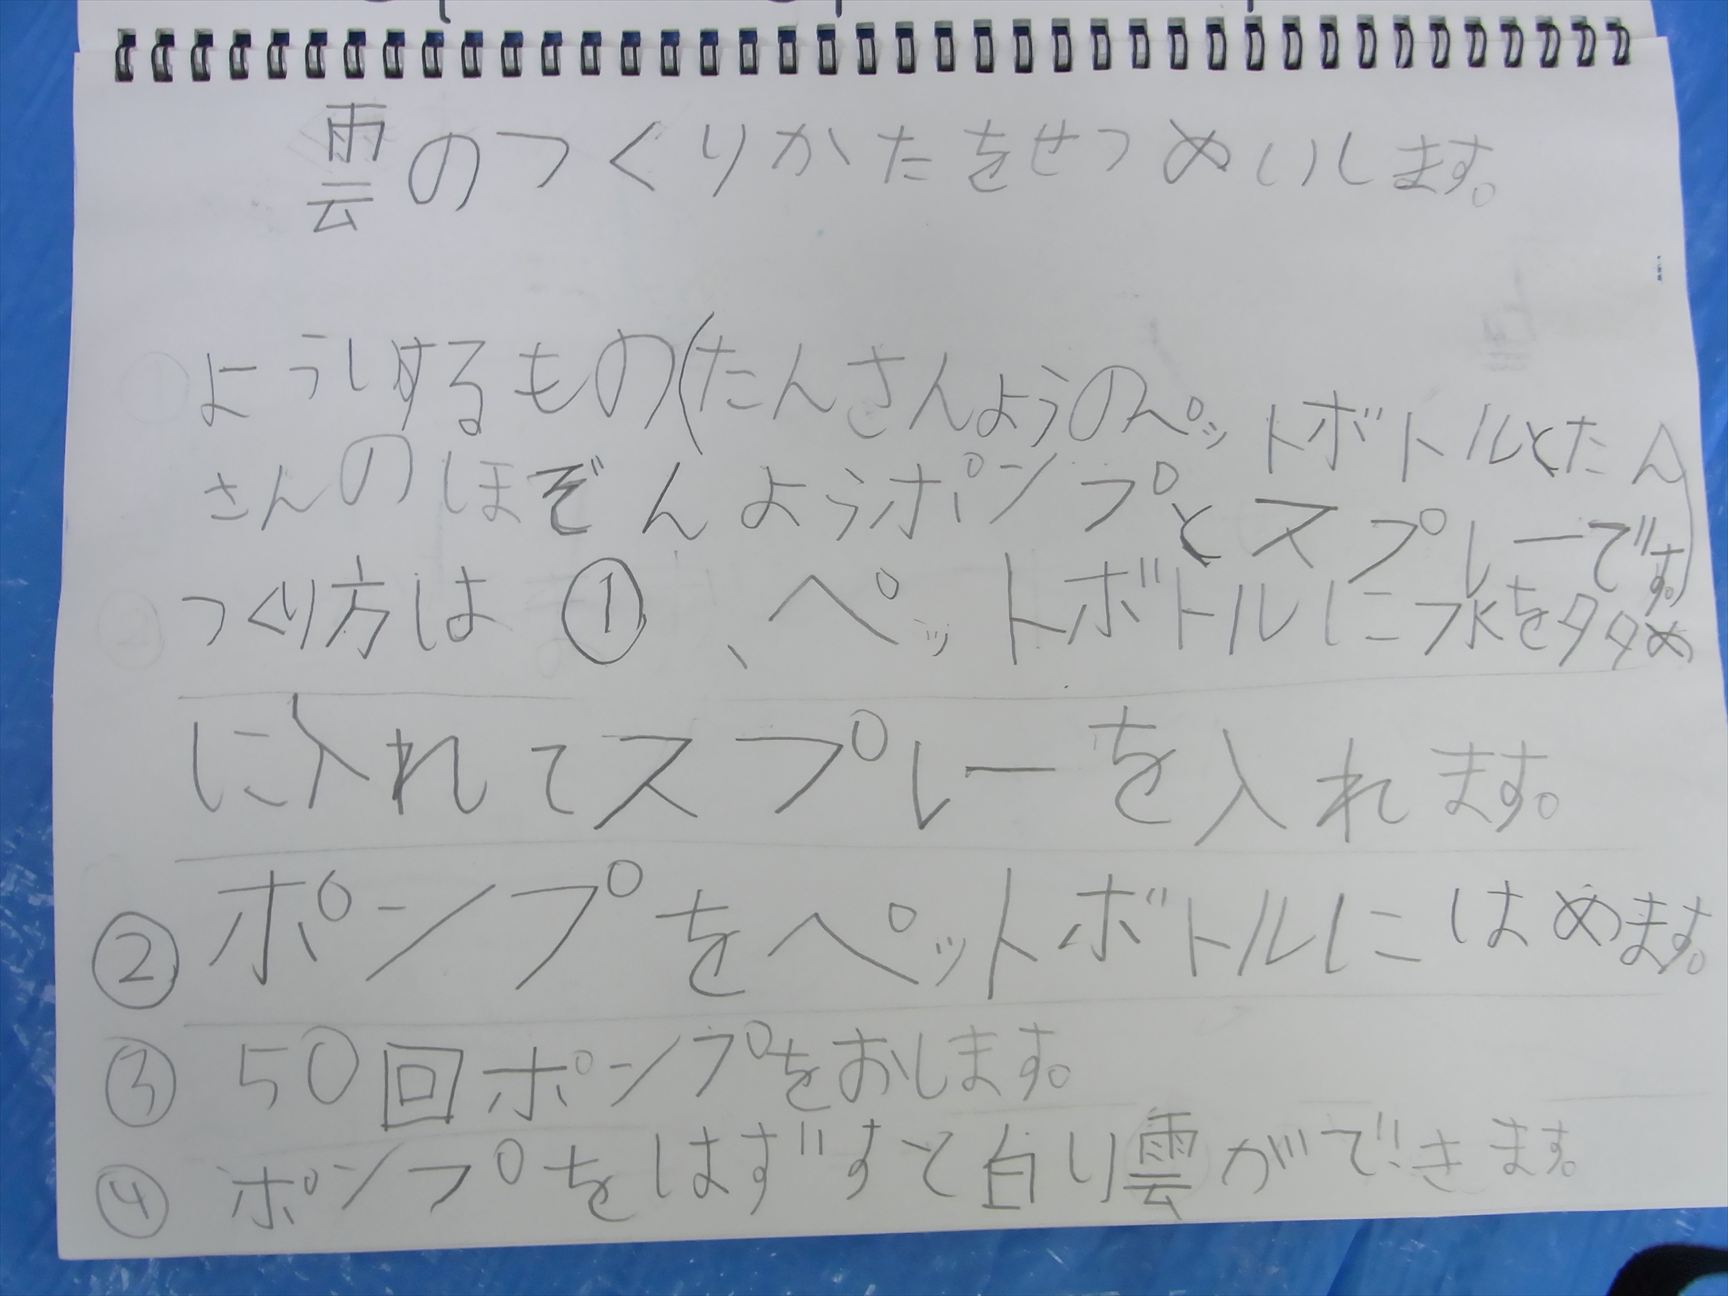 雲のつくりかたをせつめいします。
ようしするもの(たんさんようのペットボトルとたん
さんのほぞんようポンプとスプレーです。)
つくり方は①、ペットボトルに水をタタめ
に入れてスプレーを入れます。
②ポンプをペットボトルにはめます。
③50回ポンプをおします。
④ポンプをはずすと白い雲ができます。